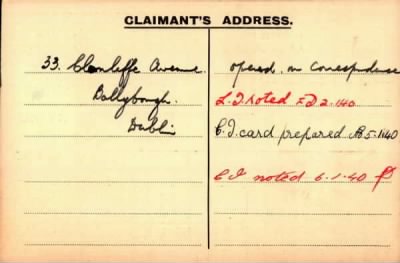 CLAIMANT'S ADDRESS.
33. Clonliffe Avenue.
Ballybough.
Dublin
opened on Correspondence
L.T. noted FD 2.1.40
C.I. card prepared 5-1-40
C I noted 6.1.40